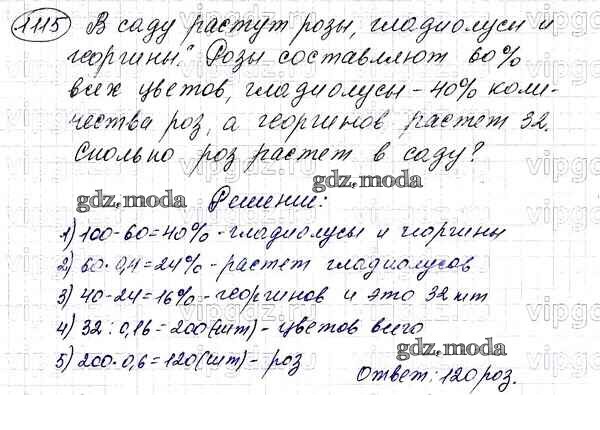 1115 В саду растут розы, гладиолусы и
георгины. Розы составляют 60%
всех цветов, гладиолусы - 40% коли-
чества роз, а георгинов растет 32.
Сколько роз растет в саду?
gdz.moda
gdz.moda
Решение:
1) 100-60=40% - гладиолусы и георгины
2) 60·0,4=24% - растет гладиолусов
3) 40-24=16% - георгинов и это 32 шт
4) 32:0,16=200(шт) - цветов всего
gdz.moda
5) 200·0,6=120(шт) - роз
Ответ: 120 роз.